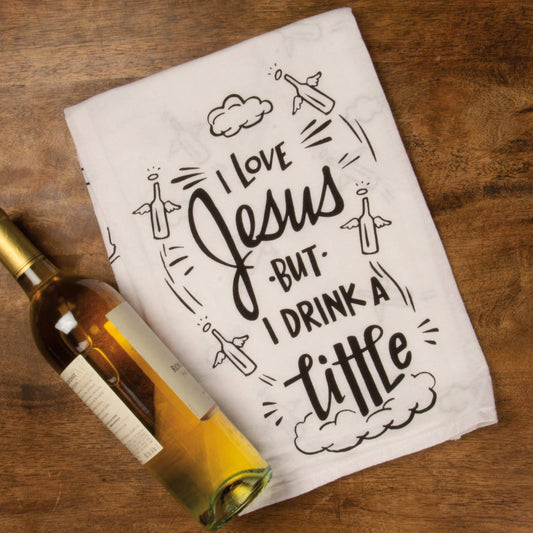 I LOVE
Jesus
·BUT·
I DRINK A
little